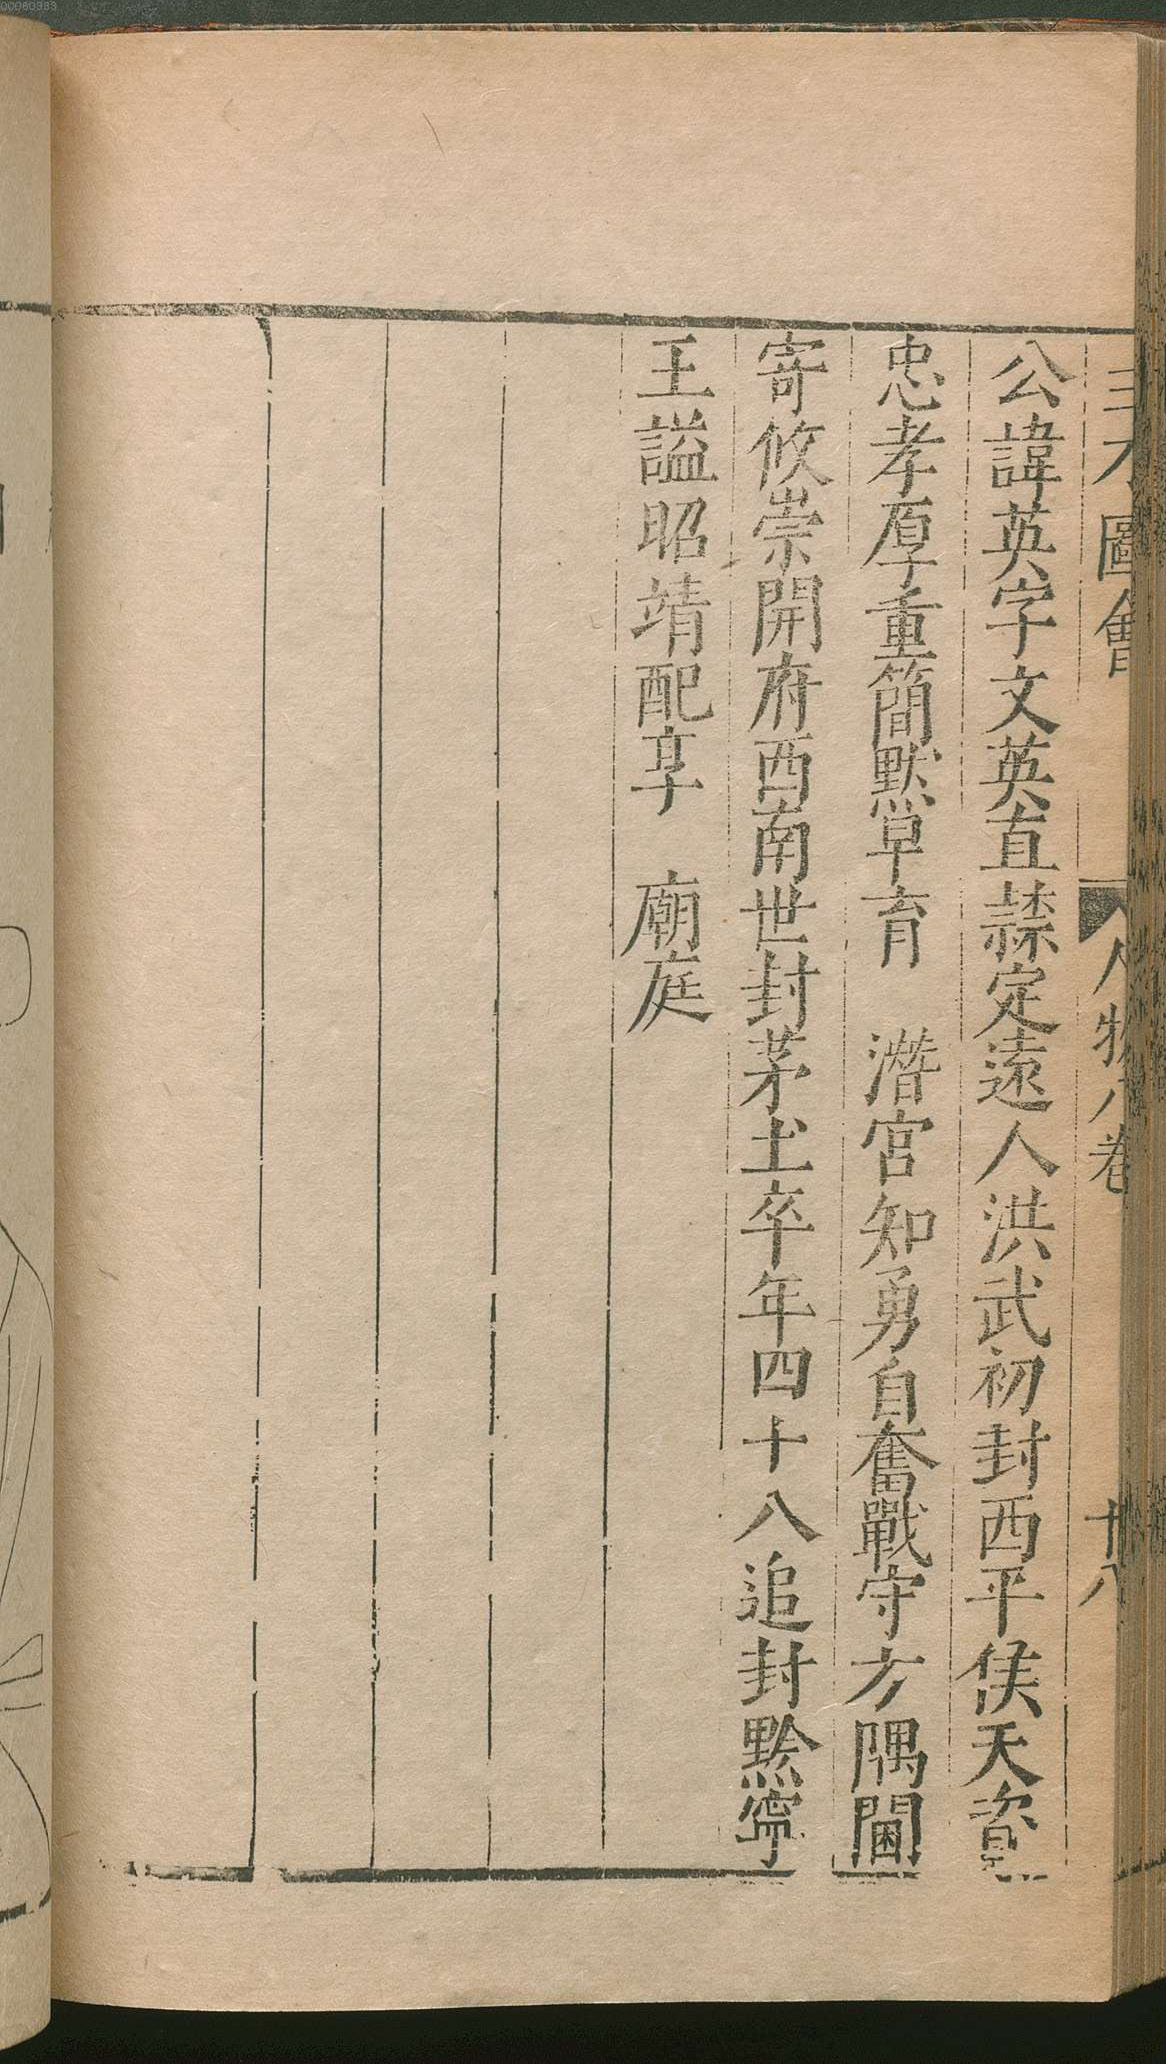 三才圖會 人物八卷 廿八
公諱英字文英直隸定遠人洪武初封西平侯天資
忠孝厚重簡默早育 潛宮知勇自奮戰守方隅閫
寄攸崇開府西南世封茅土卒年四十八追封黔寧
王謚昭靖配享 廟庭
00060383